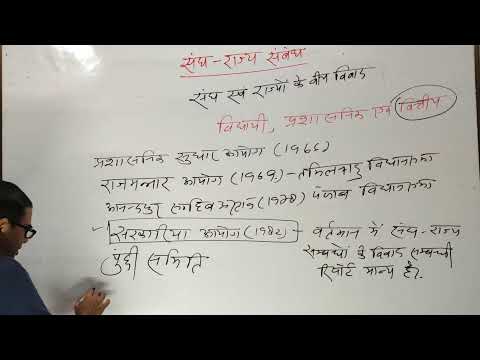 संघ-राज्य संबंध
संघ एवं राज्यों के बीच विवाद
विधायी, प्रशासनिक एवं वित्तीय
प्रशासनिक सुधार आयोग (1966)
राजमन्नार आयोग (1969) - तमिलनाडु विधानसभा
आनन्दपुर साहिब प्रस्ताव (1973) पंजाब विधानसभा
सरकारिया आयोग (1982) - वर्तमान में संघ-राज्य
सम्बन्धों के विवाद सम्बन्धी
रिपोर्ट मान्य है।
पुंछी समिति